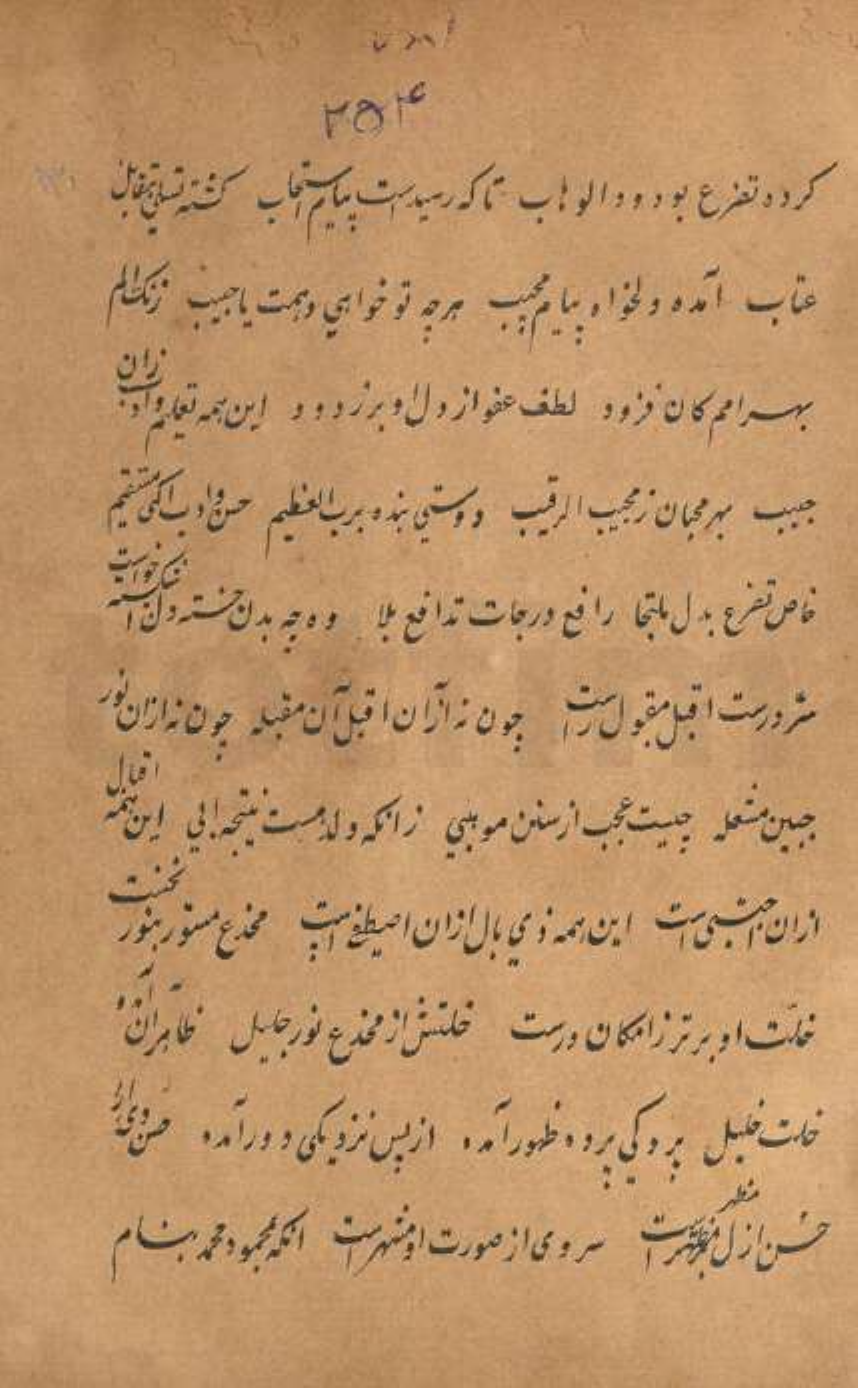 ۲۵۴
کرده تضرع بودود الوهاب تا که رسیدست پیام استجاب کشته تسلی بمقابل
عتاب آمده دلخواه پیام مجیب هرچه تو خواهی دهمت یا حبیب زنک الم
بهر امم کان فزود لطف عفو از دل او برزدود این همه تعلیم و ادب زان
حبیب بهر محبان ز مجیب الرقیب دوستی بنده برب العظیم حسن و ادب اکمی مستقیم
خاص تضرع بدل ملتجا رافع درجات تدافع بلا وه چه بدن خسته دل اشکسته خواست
سرورست اقبل مقبول راست چون نه ازان اقبل آن مقبله چون نه ازان نور
جبین مشعله چیست عجب از سنن موهبی زانکه ولد مست نتیجه ابی این همه اقبال
ازان اجتبی است این همه ذی بال ازان اصطفی است مخدع مستور بنور نخست
خلّت او برتر ز امکان درست خلتش از مخدع نور جلیل ظاهر ازان آمده
خلت خلیل پردکی پرده ظهور آمده از پس نزدیکی دور آمده حسن وی از
حسن ازل مظهرست سروی از صورت او مشهرست انکه محمود محمد بنام